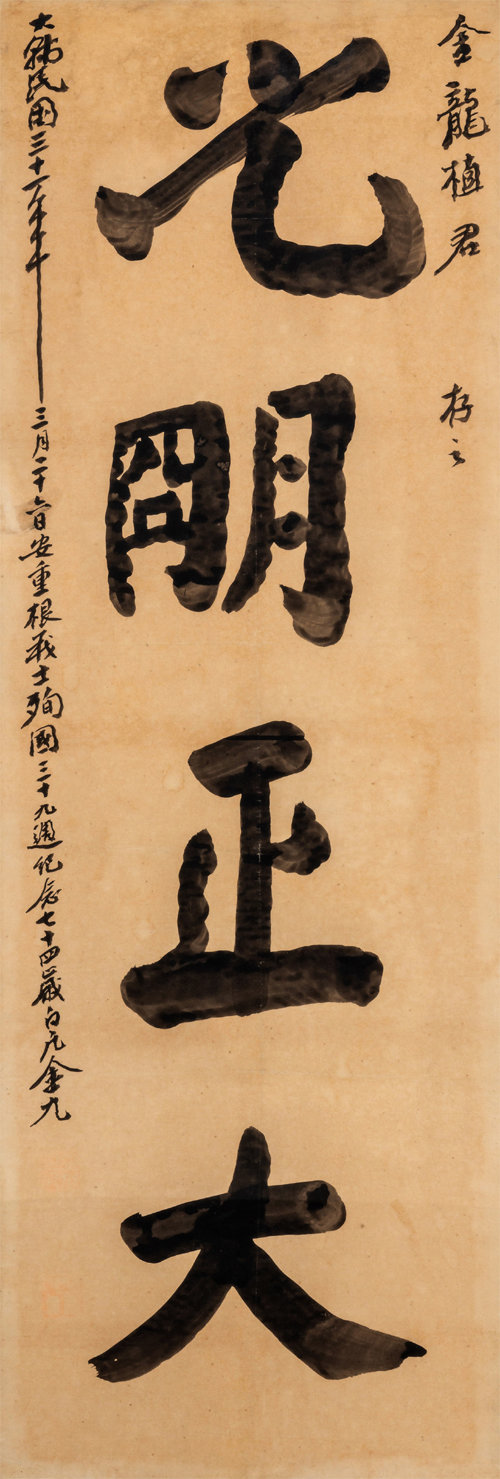 金龍植君 存之
光明正大
大韓民国三十一年三月二十六日安重根義士殉國三十九週紀念七十四歲白凡金九